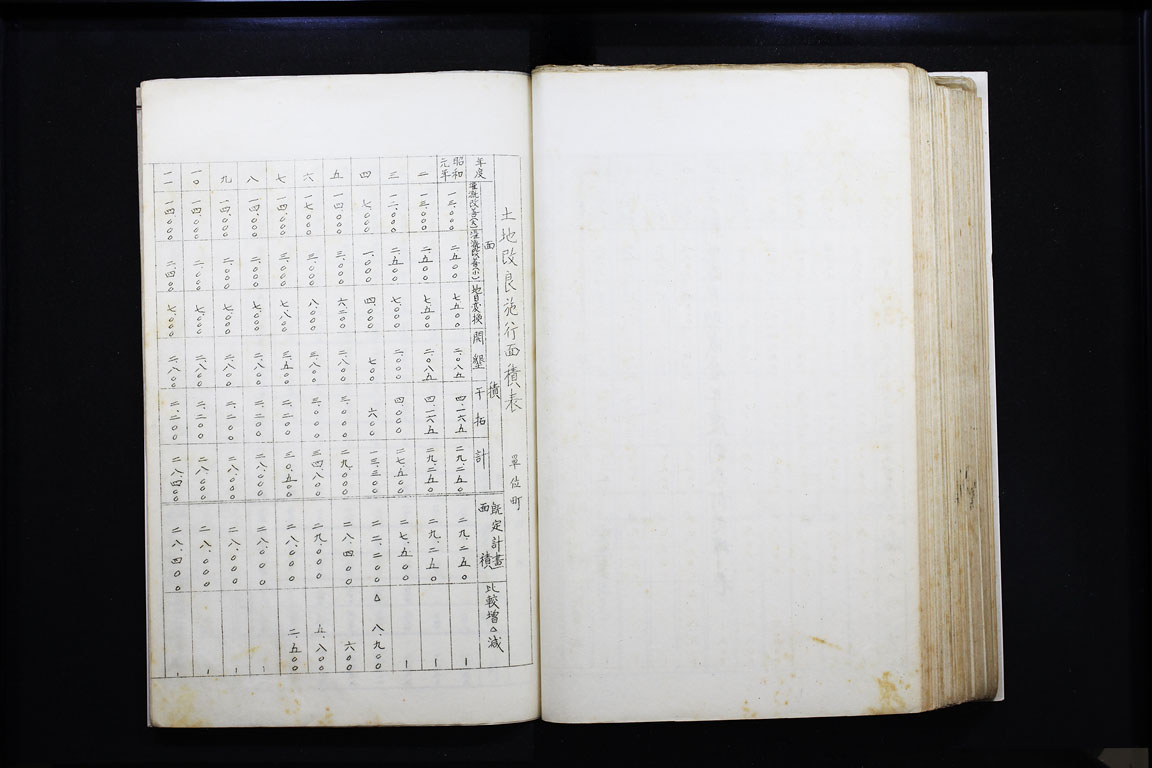 土地改良施行面積表　單位町
年度　面積　既定計畫面積　比較増△減
灌漑改善(大)　灌漑改善(小)　地目変換　開墾　干拓　計
昭和元年　一三,〇〇〇　二,五〇〇　七,五〇〇　二,〇八五　四,一六五　二九,二五〇　二九,二五〇　ー
二　一三,〇〇〇　二,五〇〇　七,五〇〇　二,〇八五　四,一六五　二九,二五〇　二九,二五〇　ー
三　一二,〇〇〇　二,五〇〇　七,〇〇〇　二,〇〇〇　四,〇〇〇　二七,五〇〇　二七,五〇〇　ー
四　七,〇〇〇　一,〇〇〇　四,〇〇〇　七〇〇　六〇〇　一三,三〇〇　二二,二〇〇　△八,九〇〇
五　一四,〇〇〇　三,〇〇〇　六,二〇〇　二,八〇〇　三,〇〇〇　二九,〇〇〇　二八,四〇〇　六〇〇
六　一七,〇〇〇　三,〇〇〇　八,〇〇〇　三,八〇〇　三,〇〇〇　三四,八〇〇　二九,〇〇〇　五,八〇〇
七　一四,〇〇〇　三,〇〇〇　七,八〇〇　三,五〇〇　二,二〇〇　三〇,五〇〇　二八,〇〇〇　二,五〇〇
八　一四,〇〇〇　二,〇〇〇　七,〇〇〇　二,八〇〇　二,二〇〇　二八,〇〇〇　二八,〇〇〇　ー
九　一四,〇〇〇　二,〇〇〇　七,〇〇〇　二,八〇〇　二,二〇〇　二八,〇〇〇　二八,〇〇〇　ー
一〇　一四,〇〇〇　二,〇〇〇　七,〇〇〇　二,八〇〇　二,二〇〇　二八,〇〇〇　二八,〇〇〇　ー
一一　一四,〇〇〇　二,四〇〇　七,〇〇〇　二,八〇〇　二,二〇〇　二八,四〇〇　二八,四〇〇　ー